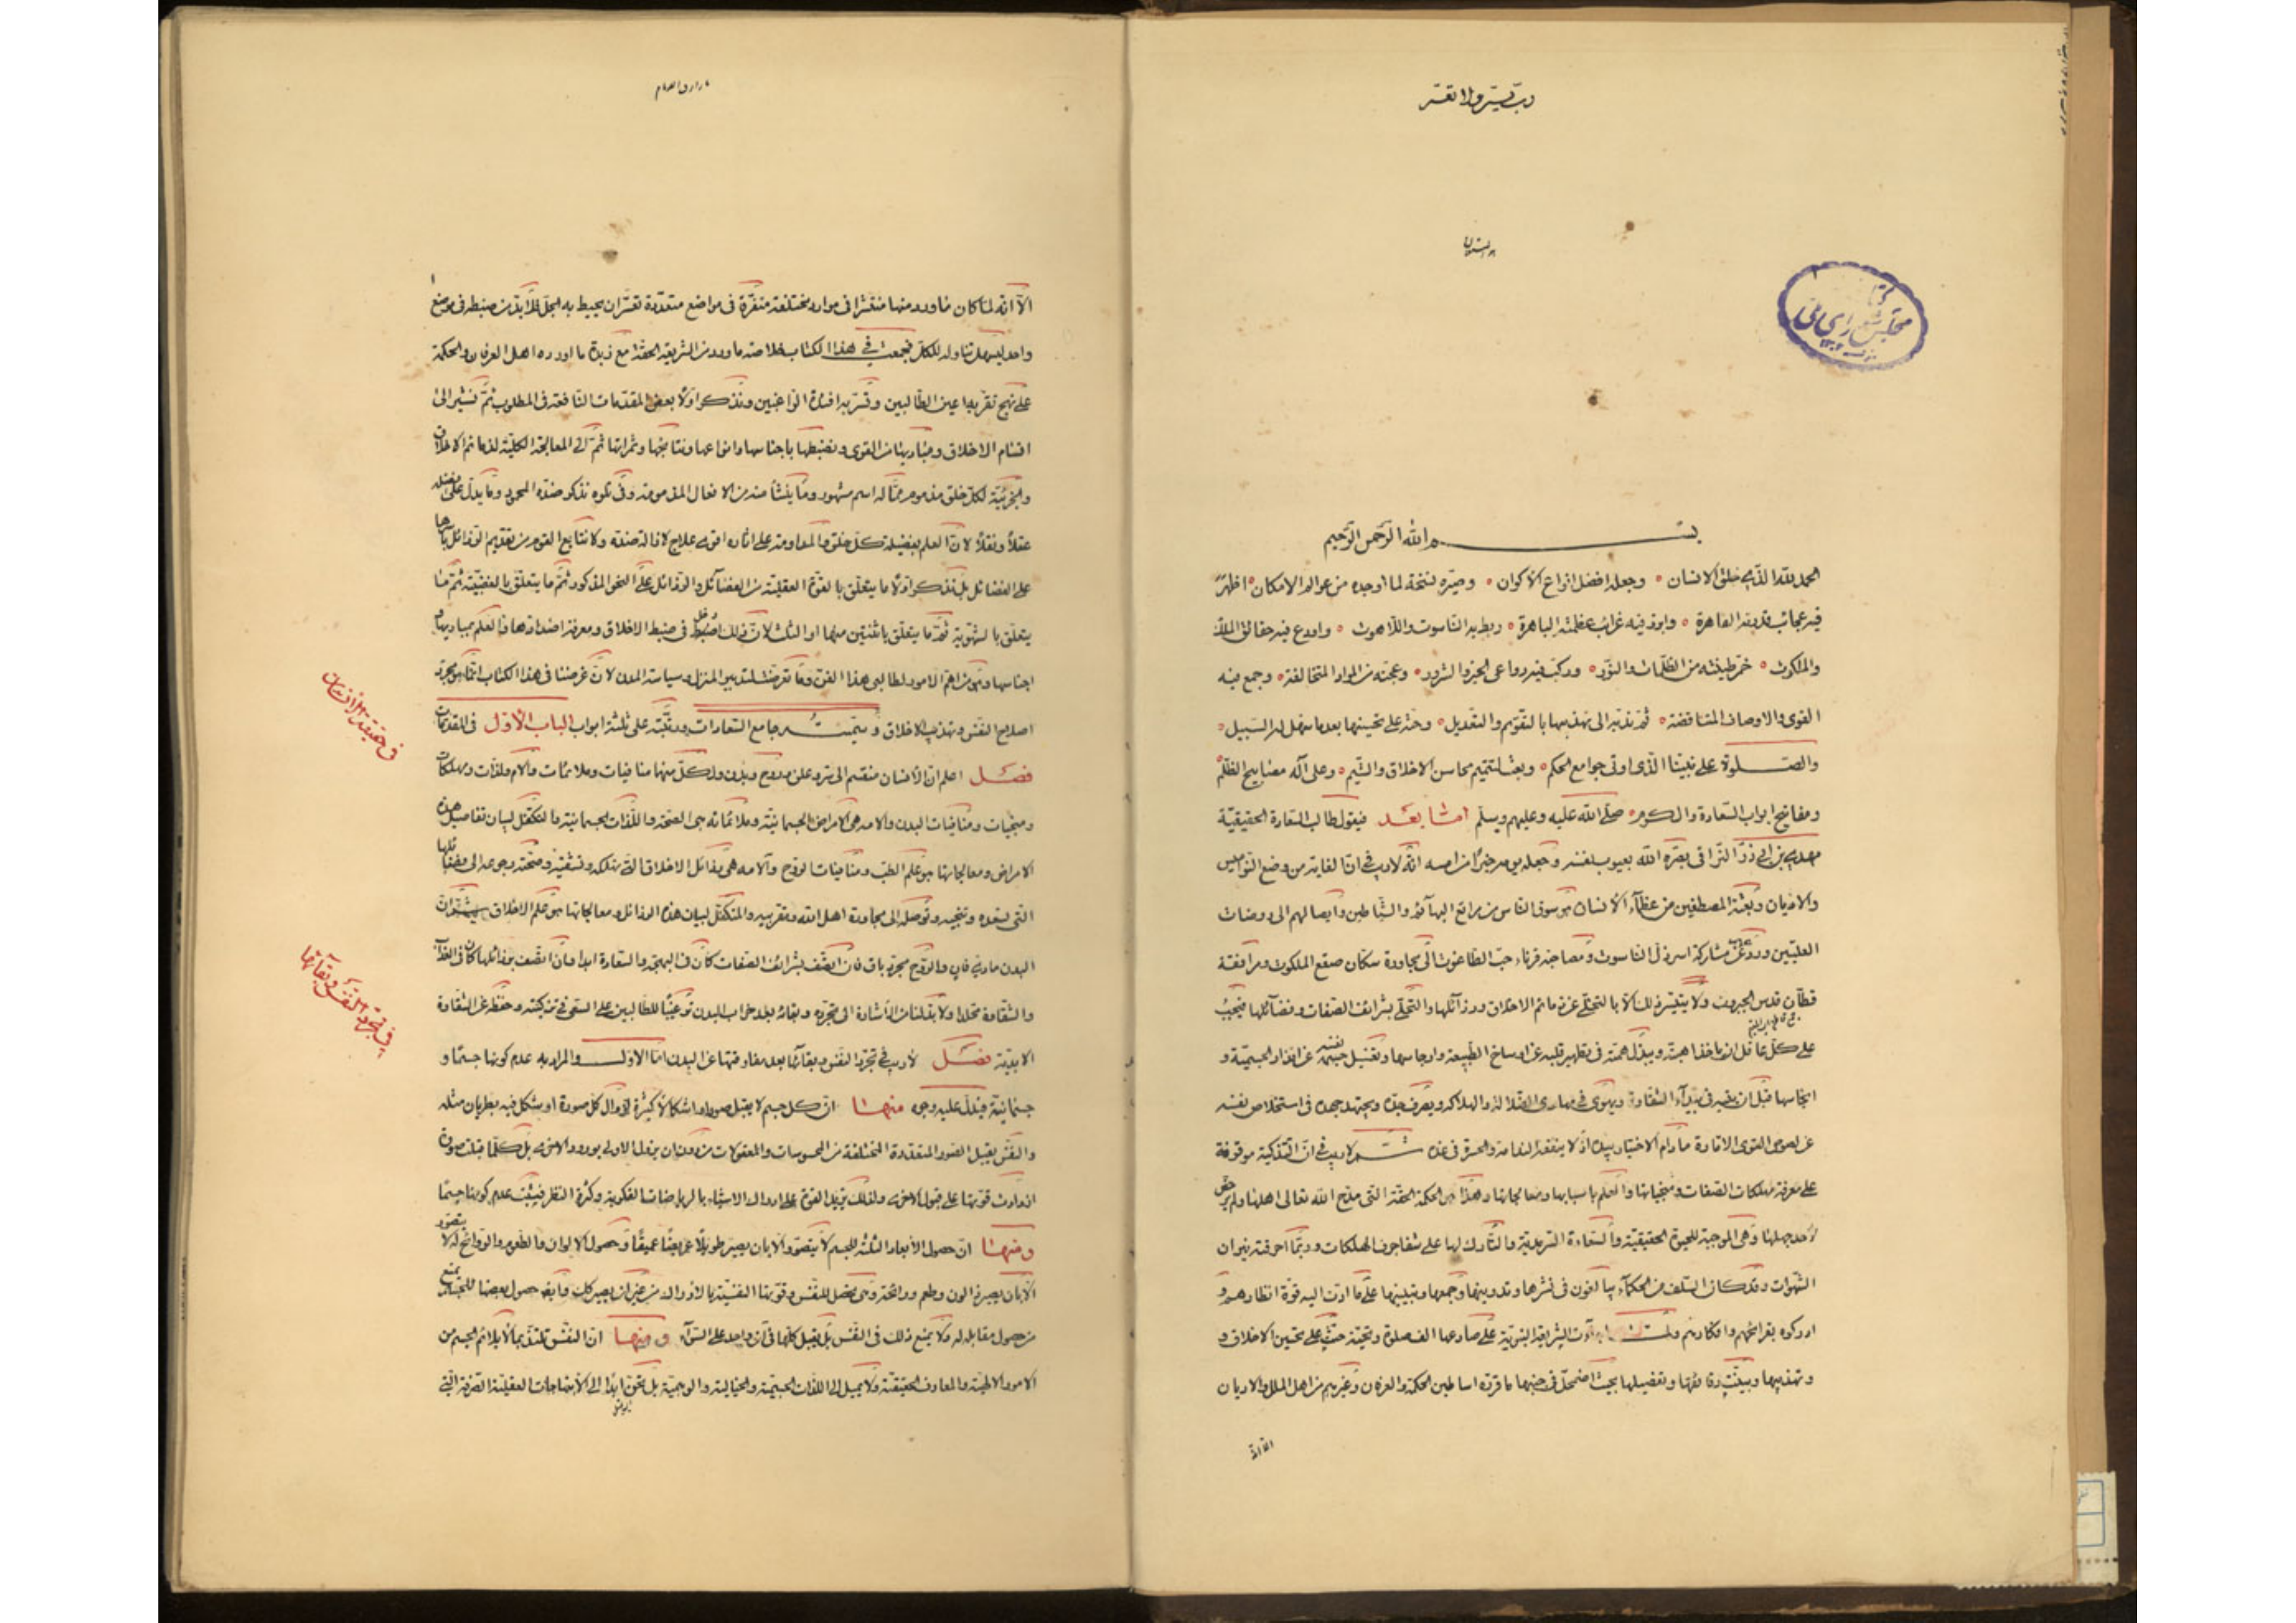 ربّ يسّر ولا تعسّر
بسم الله الرّحمن الرّحيم
الحمد لله الذي خلق الانسان وجعله افضل انواع الاكوان وصيّره نسخة لما اوجده من عوالم الامكان اظهر
فيه عجائب قدرته القاهرة وابرز فيه غرائب عظمته الباهرة ربط به الناسوت واللاهوت واودع فيه حقائق الملك
والملكوت خمّر طينته من الظلمات والنّور وركّب فيه دواعى الخير والشرور وعجنه من المواد المتخالفة وجمع فيه
القوى والاوصاف المتناقضة ثم ندبه الى تهذيبها بالتقويم والتعديل وحثه على تحسينها بعدما سهل له السّبيل
والصّلوة على نبيّنا الذى اوتى جوامع الحكم وبعث لتتميم محاسن الاخلاق والشّيم وعلى آله مصابيح الظّلم
ومفاتيح ابواب السّعادة والكرم صلّى الله عليه وعليهم وسلم امّا بعد فيقول طالب السّعادة الحقيقيّة
مهدى بن ابى ذرّ النّراقى بصّره الله بعيوب نفسه وجعل يومه خيرًا من امسه انّه لا ريب فى انّ الغاية من وضع النّواميس
والاديان وبعثة المصطفين من عظمآء الانسان هو سوق الناس من مراتع البهآئم والشّياطين وايصالهم الى روضات
العليّين وردعهم عن مشاركة اسراء ذلّ الناسوت ومصاحبة قرناء جبّ الطاغوت الى مجاورة سكّان صقع الملكوت ومرافقة
قطّان قدس الجبروت ولا يتيسّر ذلك الّا بالتخلّى عن ذمائم الاخلاق ورذآئلها والتحلّى بشرائف الصّفات وفضآئلها فيجب
على كلّ عاقل ان ياخذ اهبته ويبذل همّته فى تطهير قلبه عن اوساخ الطّبيعة وارجاسها وتغسيل نفسه عن اقذار الجسميّة و
انجاسها قبل ان يتيه فى بيدآء الشّقاوة ويهوى فى مهاوى الضّلالة والهلاكة ويصرف جدّه ويجتهد جهده فى استخلاص نفسه
عن لصوص القوى الامّارة ما دام الاختيار بيده اذ لا ينفعه النّدامة والحسرة فى غده ثمّ لا ريب فى انّ التّزكية موقوفة
على معرفة مهلكات الصّفات ومنجياتها والعلم باسبابها ومعالجاتها وهذا هى الحكمة الحقّة التى مدح الله تعالى اهلها ولم يرخّص
لاحد جهلها وهى الموجبة للحيوة الحقيقيّة والسّعادة السّرمديّة والتّارك لها على شفا جرف الهلكات وربّما احرقته نيران
الشّهوات وقد كان السّلف من الحكمآء يبالغون فى نشرها وتدوينها وجمعها وتبيينها على ما ادّت اليه قوّة انظارهم و
ادركوه بقرائحهم وافكارهم ولمّا جاءت الشّريعة النبويّة على صادعها الف صلوة وتحيّة حثّت على تحسين الاخلاق و
تهذيبها وبيّنت دقائقها وتفصيلها بحيث اضمحلّ فى جنبها ما قرّره اساطين الحكمة والعرفان وغيرهم من اهل الملل والاديان
الّا انّه
الّا انّه لمّا كان ما ورد منها منتشرا فى موارد مختلفة متفرّقة فى مواضع متعدّدة تعسّر ان يحيط به الجلّ فلا بدّ من ضبطه فى موضع
واحد ليسهل تناوله للكلّ فجمعت فى هذا الكتاب خلاصة ما ورد من الشريعة الحقّة مع زبدة ما اورده اهل العرفان والحكمة
على نهج تقرّ به اعين الطّالبين وتسرّ به افئدة الرّاغبين ونذكر اوّلا بعض المقدّمات النّافعة فى المطلوب ثمّ نشير الى
اقسام الاخلاق ومباديها من القوى ونضبطها باجناسها وانواعها ونتايجها وثمراتها ثمّ الى المعالجة الكلّية لذمائم الاخلاق
والجزئيّة لكلّ خلق مذموم ممّا له اسم مشهور وما ينشأ منه من الافعال المذمومة وفى تلوه نذكر ضدّه المحمود وما يدلّ على فضله
عقلاً ونقلاً لانّ العلم بفضيلة كلّ خلق والمداومة على اثاره اقوى علاج لازالة ضدّه ولا نتابع القوم من تقديم الرّذائل باسرها
على الفضائل بل نذكر اوّلا ما يتعلّق بالقوّة العقليّة من الفضآئل والرّذائل على النّحو المذكور ثمّ ما يتعلّق بالغضبيّة ثمّ ما
يتعلّق بالشّهويّة ثمّ ما يتعلّق باثنتين منها او الثلث لانّ ذلك ادخل فى ضبط الاخلاق ومعرفة اضدادها والعلم بمباديها و
اجناسها وهى من اهمّ الامور لطالبى هذا الفنّ وما تعرّضنا لتدبير المنزل وسياسة المدن لانّ غرضنا فى هذا الكتاب انّما هو مجرّد
اصلاح النّفس وتهذيب الاخلاق وسمّيته بجامع السّعادات ورتّبته على ثلثة ابواب الباب الاوّل فى المقدّمات
فصل اعلم انّ الانسان منقسم الى سرّ وعلن وروح وبدن ولكلّ منهما منافيات وملائمات وآلام ولذّات ومهلكات
ومنجيات ومنافيات البدن وآلامه هى الامراض الجسمانيّة وملائماته هى الصّحّة واللّذّات الجسمانيّة والمتكفّل لبيان تفاصيل هذه
الامراض ومعالجاتها هو علم الطّبّ ومنافيات الرّوح وآلامه هى رذائل الاخلاق التى تهلكه وتشقيه وصحّته رجوعه الى فضائلها
التى تسعده وتنجيه وتوصله الى مجاورة اهل الله ومقرّبيه والمتكفّل لبيان هذه الرّذائل ومعالجاتها هو علم الاخلاق ثمّ انّ
البدن مادىّ فان والرّوح مجرّد باق فان اتّصف بشرائف الصّفات كان فى البهجة والسّعادة ابدا وان اتّصف برذائلها كان فى العذاب
والشّقاوة مخلّدا ولا بدّ لنا من الاشارة الى تجرّده وبقائه بعد خراب البدن ترغيبًا للطّالبين على السّعى فى تزكيته وحفظه عن الشّقاوة
الابديّة فصل لا ريب فى تجرّد النّفس وبقآئها بعد مفارقتها عن البدن امّا الاوّل والمراد به عدم كونها جسمًا و
جسمانيّة فيدلّ عليه وجوه منها انّ كلّ جسم لا يقبل صورا واشكالاً كثيرة لزوال كلّ صورة او شكل فيه بطريان مثله
والنّفس يقبل الصّور المتعدّدة المختلفة من المحسوسات والمعقولات من دون ان يزول الاولى بورود الاخرى بل كلّما قبلت صورة
ازدادت قوّتها على قبول الاخرى ولذلك تزيد القوّة على ادراك الاشياء بالرياضات الفكرية وكثرة النّظر فيثبت عدم كونها جسمًا
ومنها انّ حصول الابعاد الثلثة للجسم لا يتصوّر الّا بان يصير طويلاً عريضًا عميقًا وحصول الالوان والطّعوم والرّوائح له لا يتصوّر
الّا بان يصير ذا لون وطعم ورائحة وهى تحصل للنّفس وقوّتها النّفسيّة بالادراك من غير ان يصير كذلك وايضا حصول بعضها للجسم يمنع
من حصول مقابله له ولا يمنع ذلك فى النّفس بل يقبل كلّها فى آن واحد على السّوآء ومنها انّ النّفس تلتذّ بما لا يلائم الجسم من
الامور الالهيّة والمعارف الحقيقيّة ولا يميل الى اللّذّات الجسميّة والخياليّة والوهميّة بل تحنّ ابدًا الى الابتهاجات العقليّة الصّرفة التى
فى حقيقة الانسان
فى تجرّد النّفس وبقآئها